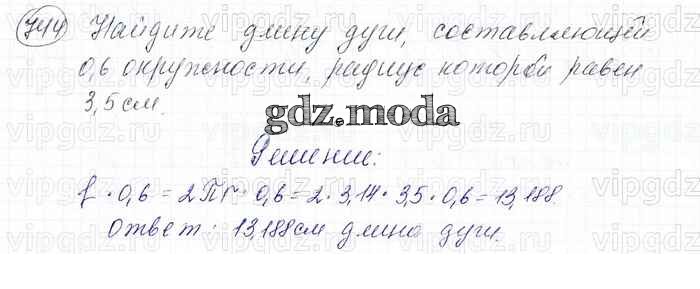 744 Найдите длину дуги, составляющей
0,6 окружности, радиус которой равен
3,5 см.
gdz.moda
Решение:
l · 0,6 = 2Пr · 0,6 = 2 · 3,14 · 3,5 · 0,6 = 13,188
Ответ: 13,188 см длина дуги.
vipgdz